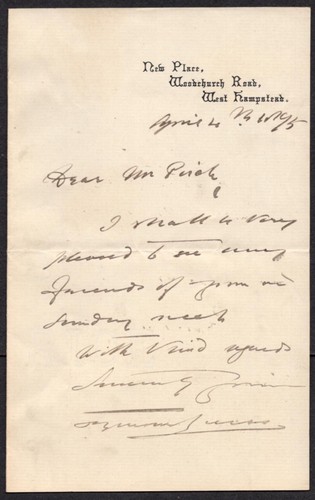 New Place,
Woodchurch Road,
West Hampstead.
April 4th 1895
Dear Mr
I shall be very
pleased to see any
friends of yours on
Sunday next
With kind regards
Sincerely yours
Seymour Lucas